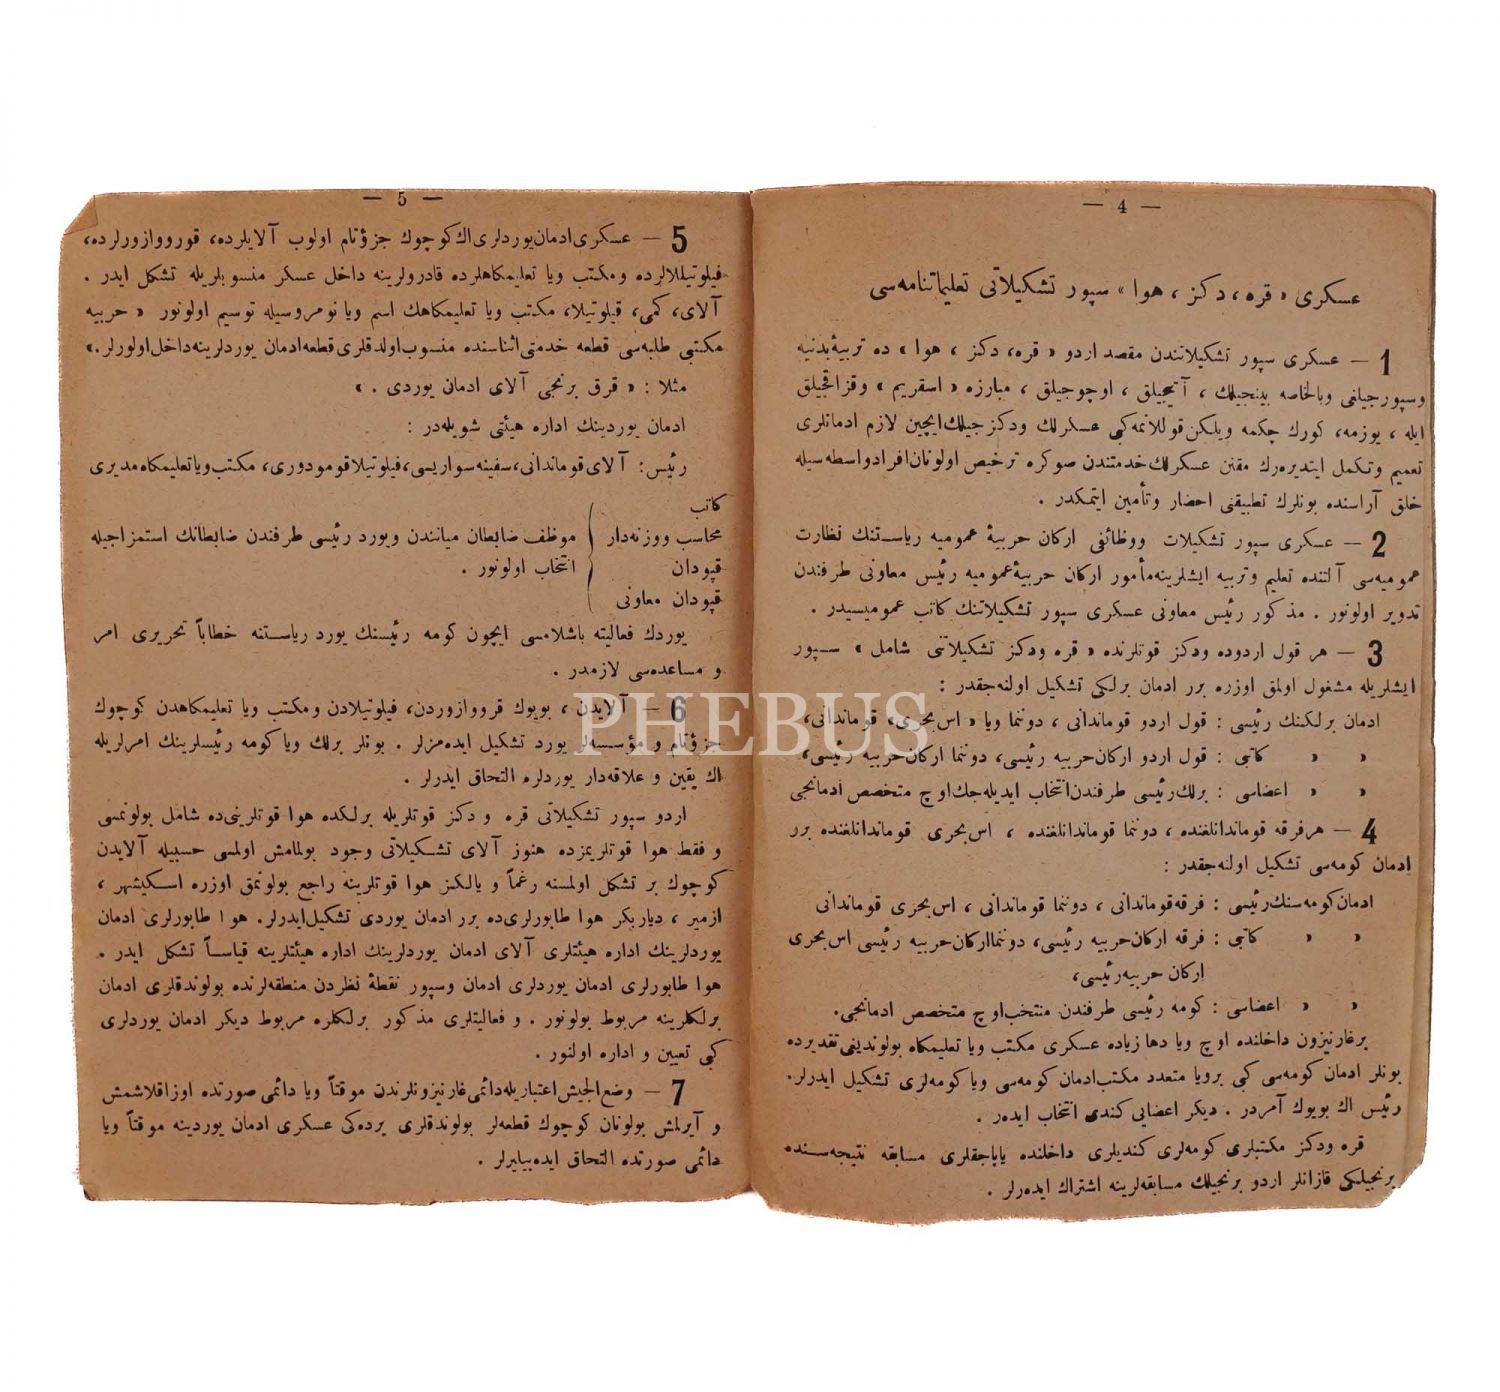 — 4 —
عسکری « قره ، دکز ، هوا » سپور تشکیلاتی تعلیماتنامه‌سی
1 — عسکری سپور تشکیلاتندن مقصد اردو « قره، دکز ، هوا » ده تربیهٔ بدنیه
وسپورجیلغی وبالخاصه بینجیلك ، آتیجیلق ، اوچوجیلق ، مبارزه « اسقریم » وقزاقجیلق
ایله ، یوزمه، کورك چکمه ویلکن قوللانمه کبی عسکرلك ودکزجیلك ایچین لازم ادمانلری
تعمیم وتکمل ایتدیره‌رك مقنن عسکرلك خدمتندن صوکره ترخیص اولونان افراد واسطه‌سیله
خلق آراسنده بونلرك تطبیقنی احضار وتأمین ایتمکدر .
2 — عسکری سپور تشکیلات ووظائفی ارکان حربیهٔ عمومیه ریاستنك نظارت
عمومیه‌سی آلتنده تعلیم وتربیه ایشلرینه مأمور ارکان حربیهٔ عمومیه رئیس معاونی طرفندن
تدویر اولونور . مذکور رئیس معاونی عسکری سپور تشکیلاتنك کاتب عمومیسیدر .
3 — هر قول اردوده ودکز قوتلرنده « قره ودکز تشکیلاتنی شامل » سپور
ایشلریله مشغول اولمق اوزره برر ادمان برلکی تشکیل اولنه‌جقدر :
ادمان برلکنك رئیسی : قول اردو قوماندانی ، دوننما ویا « اس بحری » قوماندانی،
» » کاتبی : قول اردو ارکان حربیه رئیسی، دوننما ارکان حربیه رئیسی،
» » اعضاسی : برلك رئیسی طرفندن انتخاب ایدیله‌جك اوچ متخصص ادمانجی
4 — هر فرقه قوماندانلغنده ، دوننما قوماندانلغنده ، اس بحری قوماندانلغنده برر
ادمان کومه‌سی تشکیل اولنه‌جقدر :
ادمان کومه‌سنك رئیسی : فرقه قوماندانی ، دوننما قوماندانی ، اس بحری قوماندانی
» » کاتبی : فرقه ارکان حربیه رئیسی، دوننما ارکان حربیه رئیسی اس بحری
ارکان حربیه رئیسی،
» » اعضاسی : کومه رئیسی طرفندن منتخب اوچ متخصص ادمانجی.
بر غارنیزون داخلنده اوچ ویا دها زیاده عسکری مکتب ویا تعلیمکاه بولوندیغی تقدیرده
بونلر ادمان کومه‌سی کبی بر ویا متعدد مکتب ادمان کومه‌سی ویا کومه‌لری تشکیل ایدرلر.
رئیس اك بویوك آمردر . دیکر اعضایی کندی انتخاب ایده‌ر .
قره ودکز مکتبلری کومه‌لری کندیلری داخلنده یاپاجقلری مسابقه نتیجه‌سنده
برنجیلکی قازانلر اردو برنجیلك مسابقه‌لرینه اشتراك ایده‌رلر .
— 5 —
5 — عسکری ادمان یوردلری اك کوچوك جزؤتام اولوب آلایلرده، قورووازورلرده،
فیلوتیللالرده ومکتب ویا تعلیمکاهلرده قادرولرینه داخل عسکر منسوبلریله تشکل ایدر .
آلای، کمی، فیلوتیلا، مکتب ویا تعلیمکاهك اسم ویا نومروسیله توسیم اولونور « حربیه
مکتبی طلبه‌سی قطعه خدمتی اثناسنده منسوب اولدقلری قطعه ادمان یوردلرینه داخل اولورلر.»
مثلا : « قرق برنجی آلای ادمان یوردی . »
ادمان یوردینك اداره هیئتی شویله‌در :
رئیس: آلای قوماندانی، سفینه سواریسی، فیلوتیلا قومودوری، مکتب ویا تعلیمکاه مدیری
کاتب
محاسب ووزنه‌دار } موظف ضابطان میانندن ویورد رئیسی طرفندن ضابطانك استمزاجیله
قپودان } انتخاب اولونور .
قپودان معاونی
یوردك فعالیته باشلامسی ایچون کومه رئیسنك یورد ریاستنه خطاباً تحریری امر
و مساعده‌سی لازمدر .
6 — آلایدن ، بویوك قرووازوردن، فیلوتیلادن ومکتب ویا تعلیمکاهدن کوچوك
جزؤتام و مؤسسه‌لر یورد تشکیل ایده‌مزلر . بونلر برلك ویا کومه رئیسلرینك امرلریله
اك یقین و علاقه‌دار یوردلره التحاق ایدرلر .
اردو سپور تشکیلاتی قره و دکز قوتلریله برلکده هوا قوتلرینی‌ده شامل بولونمسی
و فقط هوا قوتلریمزده هنوز آلای تشکیلاتی وجود بولمامش اولمسی حسبیله آلایدن
کوچوك بر تشکل اولمسنه رغماً و یالکز هوا قوتلرینه راجع بولونمق اوزره اسکیشهر ،
ازمیر ، دیاربکر هوا طابورلری‌ده برر ادمان یوردی تشکیل ایدرلر. هوا طابورلری ادمان
یوردلرینك اداره هیئتلری آلای ادمان یوردلرینك اداره هیئتلرینه قیاساً تشکل ایدر .
هوا طابورلری ادمان یوردلری ادمان وسپور نقطهٔ نظردن منطقه‌لرنده بولوندقلری ادمان
برلکلرینه مربوط بولونور . و فعالیتلری مذکور برلکلره مربوط دیکر ادمان یوردلری
کبی تعیین و اداره اولنور .
7 — وضع الجیش اعتباریله دائمی غارنیزونلرندن موقتاً ویا دائمی صورتده اوزاقلاشمش
و آیرلمش بولونان کوچوك قطعه‌لر بولوندقلری یرده‌کی عسکری ادمان یوردینه موقتاً ویا
دائمی صورتده التحاق ایده‌بیلیرلر .
PHEBUS